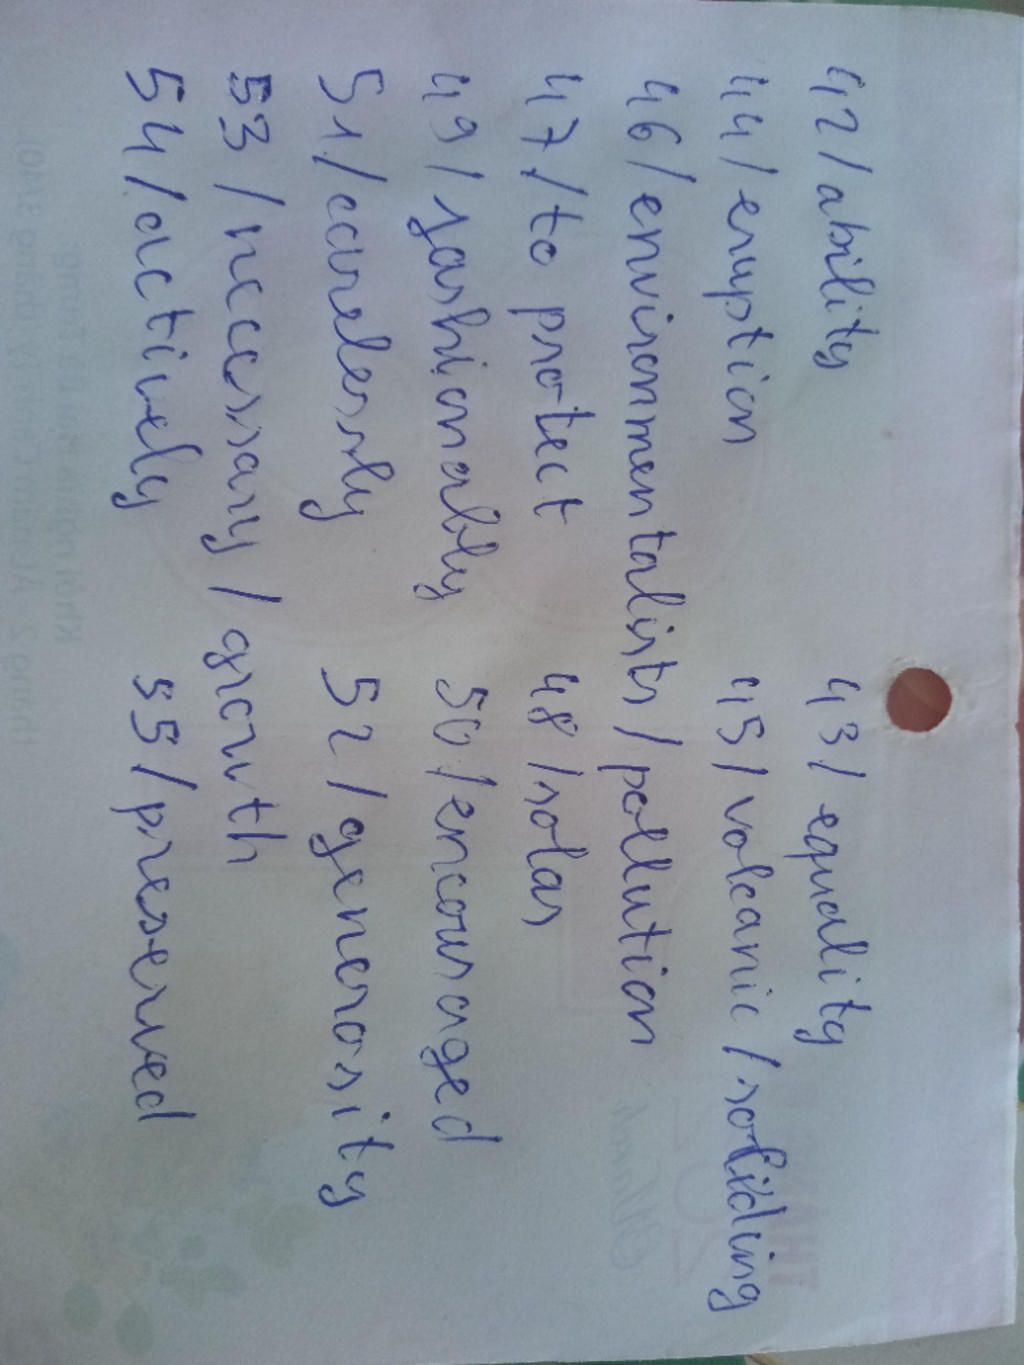 42/ability 43/equality
44/eruption 45/volcanic/soliding
46/environmentalists/pollution
47/to protect 48/solar
49/fashionably 50/encouraged
51/carelessly 52/generosity
53/necessary/growth
54/actively 55/preserved